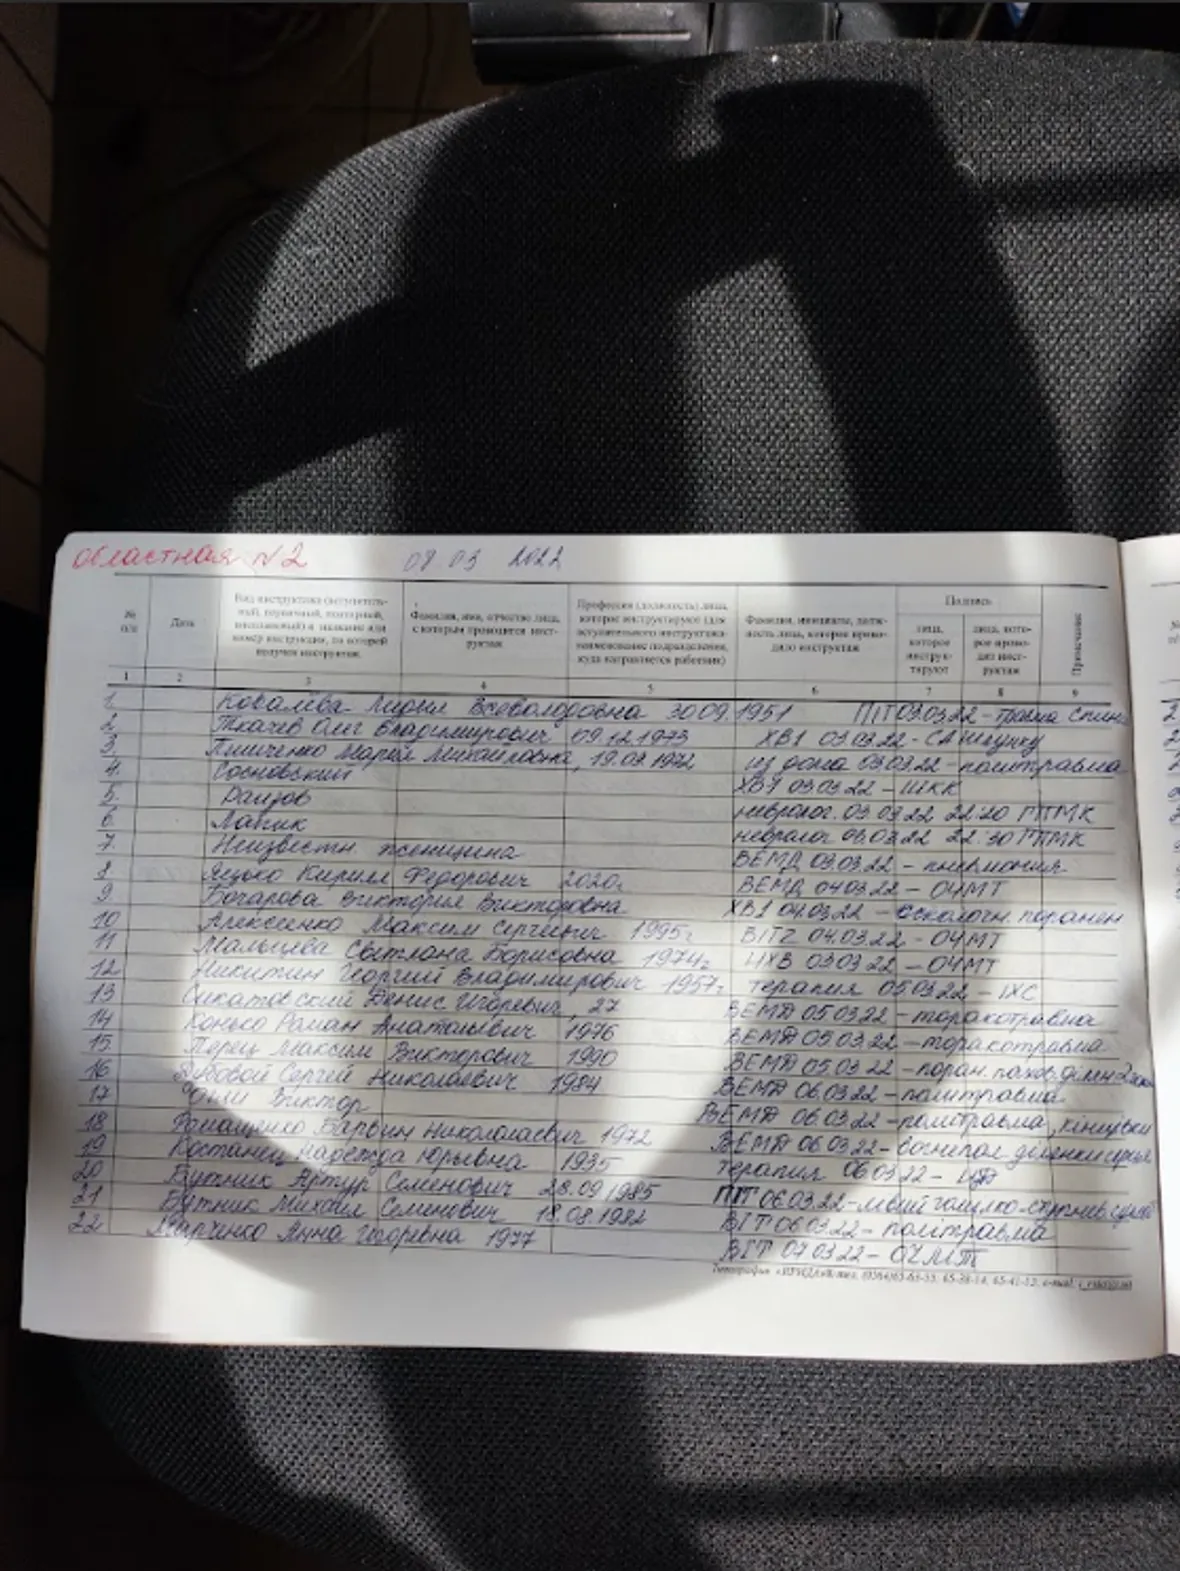 Областная №2 08.03 2022
№ п/п
Дата
Вид инструктажа (вступительный, первичный, повторный, внеплановый) и название или номер инструкции, по которой получен инструктаж
Фамилия, имя, отчество лица, с которым проводится инструктаж
Профессия (должность) лица, которое инструктируют (для вступительного инструктажа наименование подразделения, куда направляется работник)
Фамилия, инициалы, должность лица, которое проводило инструктаж
Подпись
лица, которое инструктируют
лица, которое проводит инструктаж
Примечание
1 2 3 4 5 6 7 8 9
1. Ковалёва Лидия Всеволодовна 30.09.1951 ПІТ 03.03.22 - травма спины
2. Ткачев Олег Владимирович 09.12.1973 ХВ1 03.03.22 - СА шлунку
3. Мария Михайловна, 19.03.1972 из дома 03.03.22 - политравма
4. Сосновский ХВ1 03.03.22 - ШКК
5. невролог. 03.03.22 22:20 ГПМК
6. Лапик невролог 22:30 ГПМК
7. Неизвестн. женщина ВЕМД 03.03.22 - пневмония
8. Яцько Кирилл Федорович 2020г ВЕМД 04.03.22 - ОЧМТ
9 Богарова Виктория Викторовна ХВ1 04.03.22 - осколочн. поранен
10 Алексеенко Максим Сергеевич 1995г ВІТ2 04.03.22 - ОЧМТ
11 Мальцева Светлана Борисовна 1974г НХВ 03.03.22 - ОЧМТ
12 Никитин Георгий Владимирович 1957г терапия 05.03.22 - ІХС
13 Денис Игоревич, 27 ВЕМД 05.03.22 - торакотравма
14 Конько Роман Анатольевич 1976 ВЕМД 05.03.22 - торакотравма
15 Перец Максим Викторович 1990 ВЕМД 05.03.22 - поран. пахов. ділян
16 Сергей Николаевич 1984 ВЕМД 06.03.22 - политравма
17 Виктор ВЕМД 06.03.22 - политравма, кінцівки
18 Ромащенко Николаевич 1972 ВЕМД 06.03.22 - ділянки серця
19 Костанец Надежда Юрьевна 1935 терапия 06.03.22 -
20 Бутник Артур Семенович 28.09.1985 ПІТ 06.03.22 -
21 Бутник Михаил Семенович 18.08.1982 ВІТ 06.03.22 - політравма
22 Марченко Анна Игоревна 1977 ВІТ 07.03.22 - ОЧМТ